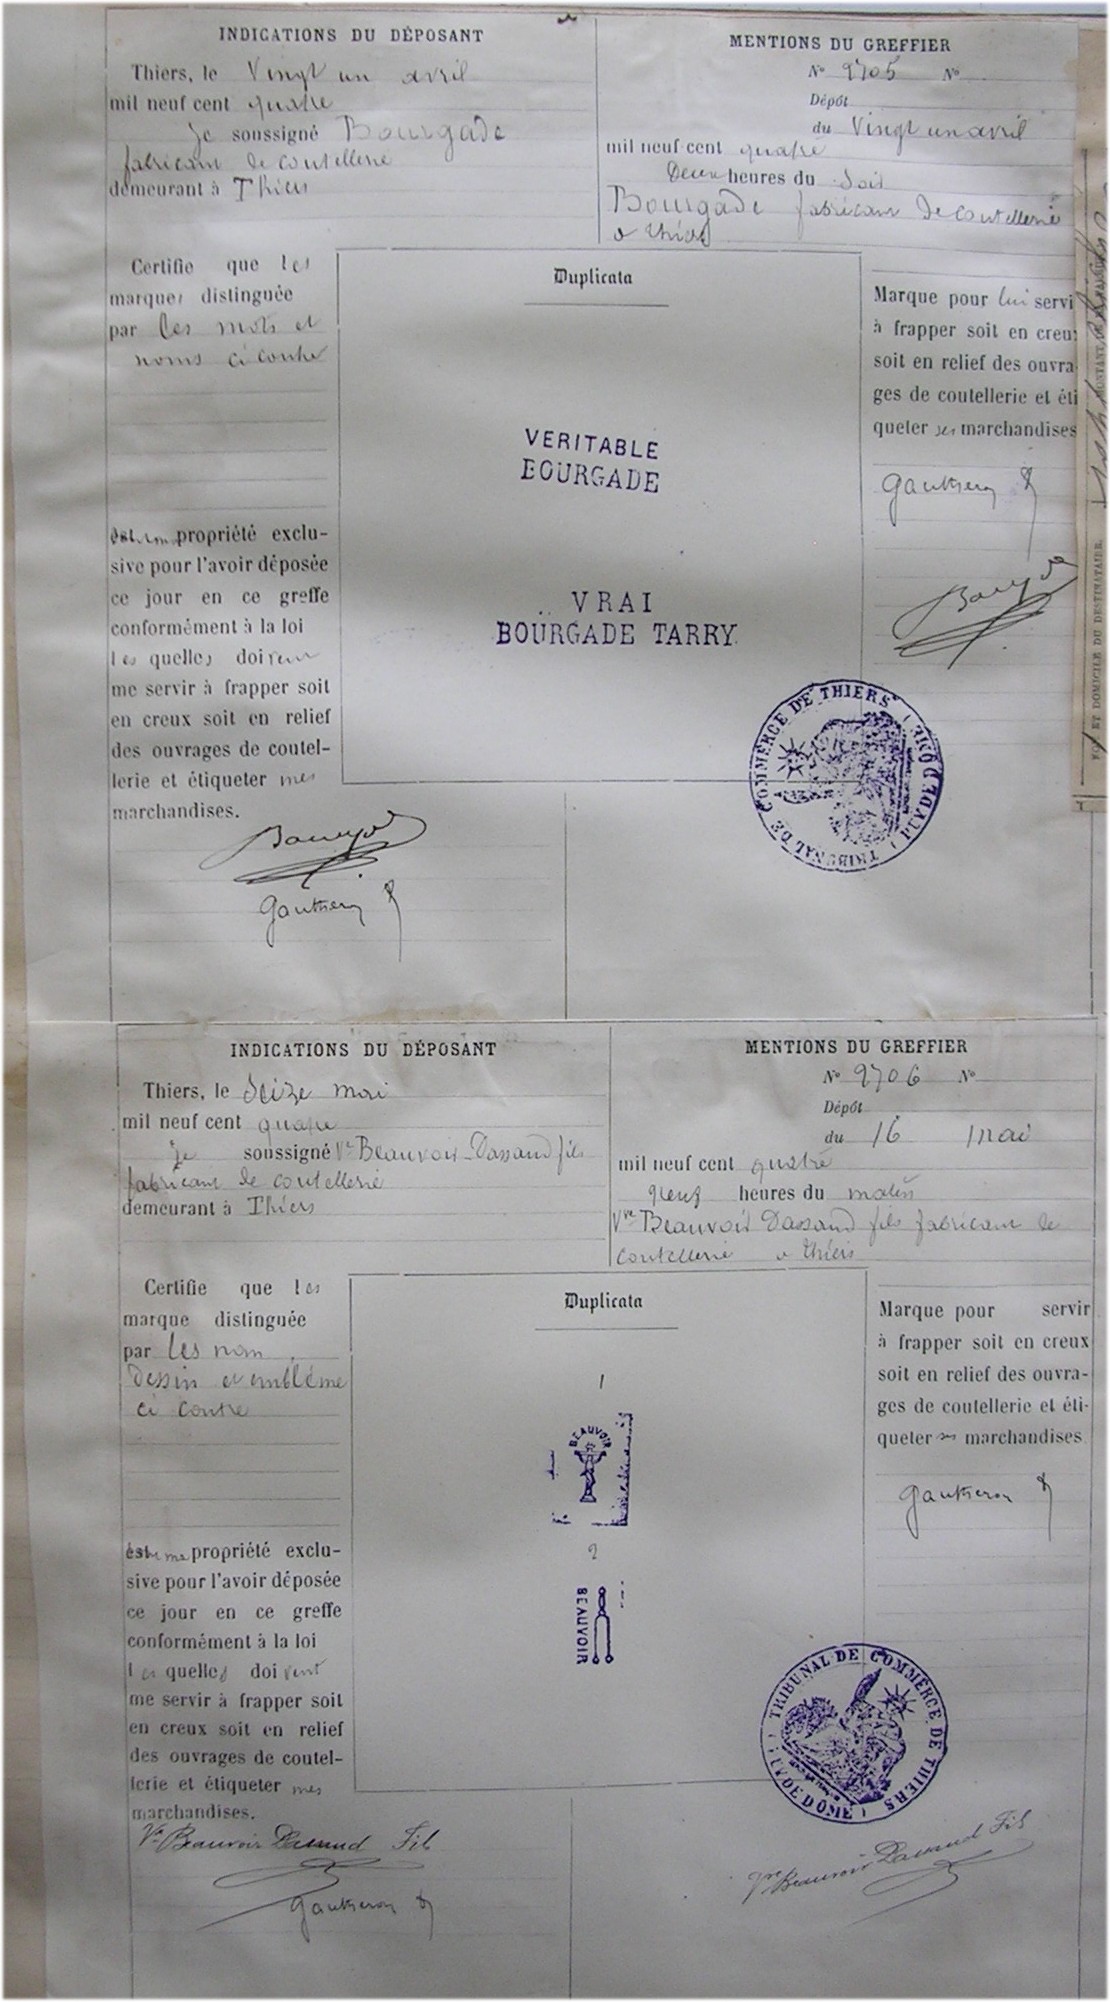 INDICATIONS DU DÉPOSANT
Thiers, le Vingt un avril
mil neuf cent quatre
Je soussigné Bourgade
fabricant de coutellerie
demeurant à Thiers
MENTIONS DU GREFFIER
N° 2705 N°
Dépôt
du Vingt un avril
mil neuf cent quatre
Deux heures du Soir
Bourgade fabricant de coutellerie
a thiers
Certifie que les
marques distinguée
par les mots et
noms ci contre
est ma propriété exclu-
sive pour l'avoir déposée
ce jour en ce greffe
conformément à la loi
les quelles doivent
me servir à frapper soit
en creux soit en relief
des ouvrages de coutel-
lerie et étiqueter mes
marchandises.
Bourgade
Gautheron
Duplicata
VERITABLE
BOURGADE
VRAI
BOURGADE TARRY
TRIBUNAL DE COMMERCE DE THIERS (PUY DE DOME)
Marque pour lui servi
à frapper soit en creux
soit en relief des ouvra-
ges de coutellerie et éti
queter ses marchandises
Gautheron
Bourgade
ET DOMICILE DU DESTINATAIRE.
INDICATIONS DU DÉPOSANT
Thiers, le Seize mai
mil neuf cent quatre
je soussigné Ve Beauvoir-Dassaud fils
fabricant de coutellerie
demeurant à Thiers
MENTIONS DU GREFFIER
N° 2706 N°
Dépôt
du 16 mai
mil neuf cent quatre
neuf heures du matin
Vve Beauvoir Dassaud fils fabricant de
coutellerie a thiers
Certifie que les
marque distinguée
par les nom,
dessin et emblème
ci contre
est ma propriété exclu-
sive pour l'avoir déposée
ce jour en ce greffe
conformément à la loi
les quelles doivent
me servir à frapper soit
en creux soit en relief
des ouvrages de coutel-
lerie et étiqueter mes
marchandises.
Ve Beauvoir Dassaud Fils
Gautheron
Duplicata
1
BEAUVOIR
2
BEAUVOIR
TRIBUNAL DE COMMERCE DE THIERS (PUY DE DOME)
Marque pour servir
à frapper soit en creux
soit en relief des ouvra-
ges de coutellerie et éti-
queter ses marchandises
Gautheron
Vve Beauvoir Dassaud Fils